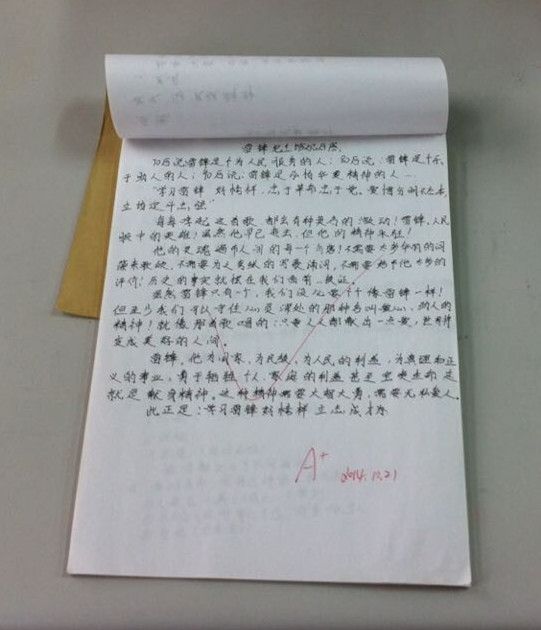 雷锋
70后说雷锋是个为人民服务的人；80后说：雷锋是个乐
于助人的人；90后说：雷锋是
"学习雷锋 好榜样，忠于革命忠于党，爱憎分明不忘本，
立场坚定斗志强"
每每唱起这首歌，都会有种莫名的激动！雷锋，人民
心中的英雄！虽然他早已逝去，但他的精神永驻！
他的灵魂遍布人间的每一个角落！不需要太多华丽的词
藻来歌颂，不需要 不需要给予他太多的
评价！历史的事实就摆在我们面前
虽然雷锋只有一个，我们没必要个个像雷锋一样！
但至少我们可以守住心灵深处的那种名叫爱心、助人的
精神！就像那首歌唱的：只要人人都献出一点爱，世界将
变成美好的人间。
雷锋，他为国家，为民族，为人民的利益，为真理和正
义的事业，勇于牺牲个人、家庭的利益甚至宝贵生命
就是献身精神。这种精神需要大智大勇，需要无私爱人。
此正是：学习雷锋好榜样 立志成才
A+
2014.12.21